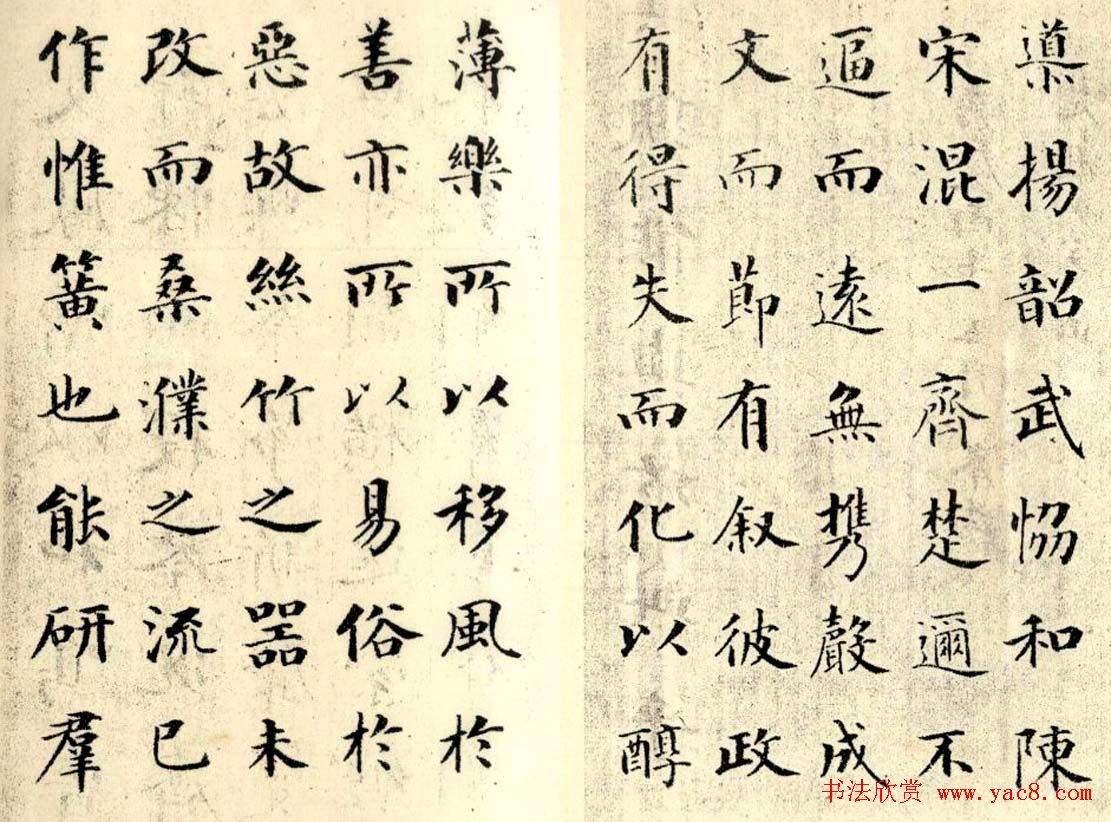 導揚韶武恊和陳
宋混一齊楚邇不
逼而遠無携聲成
文而節有叙彼政
有得失而化以醇
薄樂所以移風於
善亦所以易俗於
惡故絲竹之器未
改而桑濮之流已
作惟簧也能研羣
书法欣赏 www.yac8.com